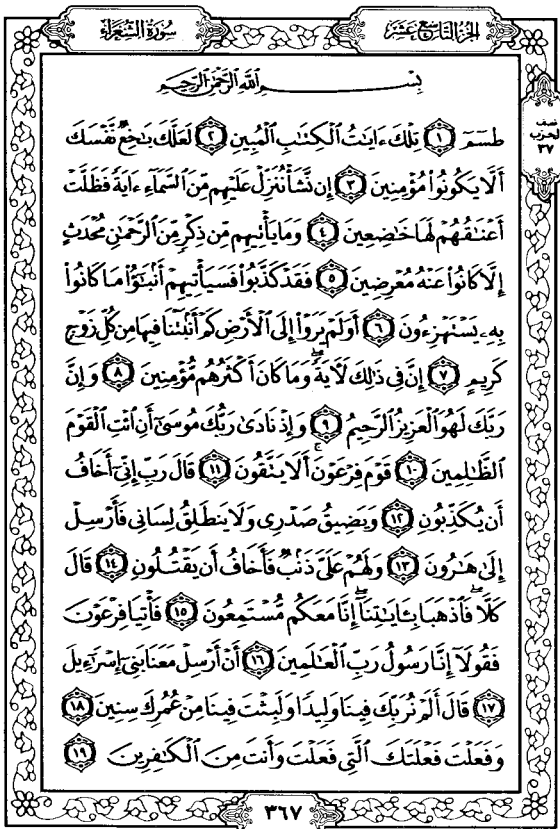 سُورَةُ الشُّعَرَاءِ
الجُزْءُ التَّاسِعَ عَشَرَ
نصف
الحزب
٣٧
بِسْمِ اللَّهِ الرَّحْمَٰنِ الرَّحِيمِ
طسٓمٓ ١ تِلْكَ ءَايَٰتُ ٱلْكِتَٰبِ ٱلْمُبِينِ ٢ لَعَلَّكَ بَٰخِعٌ نَّفْسَكَ
أَلَّا يَكُونُوا۟ مُؤْمِنِينَ ٣ إِن نَّشَأْ نُنَزِّلْ عَلَيْهِم مِّنَ ٱلسَّمَآءِ ءَايَةً فَظَلَّتْ
أَعْنَٰقُهُمْ لَهَا خَٰضِعِينَ ٤ وَمَا يَأْتِيهِم مِّن ذِكْرٍ مِّنَ ٱلرَّحْمَٰنِ مُحْدَثٍ
إِلَّا كَانُوا۟ عَنْهُ مُعْرِضِينَ ٥ فَقَدْ كَذَّبُوا۟ فَسَيَأْتِيهِمْ أَنۢبَٰٓؤُا۟ مَا كَانُوا۟
بِهِۦ يَسْتَهْزِءُونَ ٦ أَوَلَمْ يَرَوْا۟ إِلَى ٱلْأَرْضِ كَمْ أَنۢبَتْنَا فِيهَا مِن كُلِّ زَوْجٍ
كَرِيمٍ ٧ إِنَّ فِى ذَٰلِكَ لَءَايَةً ۖ وَمَا كَانَ أَكْثَرُهُم مُّؤْمِنِينَ ٨ وَإِنَّ
رَبَّكَ لَهُوَ ٱلْعَزِيزُ ٱلرَّحِيمُ ٩ وَإِذْ نَادَىٰ رَبُّكَ مُوسَىٰٓ أَنِ ٱئْتِ ٱلْقَوْمَ
ٱلظَّٰلِمِينَ ١٠ قَوْمَ فِرْعَوْنَ ۚ أَلَا يَتَّقُونَ ١١ قَالَ رَبِّ إِنِّىٓ أَخَافُ
أَن يُكَذِّبُونِ ١٢ وَيَضِيقُ صَدْرِى وَلَا يَنطَلِقُ لِسَانِى فَأَرْسِلْ
إِلَىٰ هَٰرُونَ ١٣ وَلَهُمْ عَلَىَّ ذَنۢبٌ فَأَخَافُ أَن يَقْتُلُونِ ١٤ قَالَ
كَلَّا ۖ فَٱذْهَبَا بِـَٔايَٰتِنَآ ۖ إِنَّا مَعَكُم مُّسْتَمِعُونَ ١٥ فَأْتِيَا فِرْعَوْنَ
فَقُولَآ إِنَّا رَسُولُ رَبِّ ٱلْعَٰلَمِينَ ١٦ أَنْ أَرْسِلْ مَعَنَا بَنِىٓ إِسْرَٰٓءِيلَ
١٧ قَالَ أَلَمْ نُرَبِّكَ فِينَا وَلِيدًا وَلَبِثْتَ فِينَا مِنْ عُمُرِكَ سِنِينَ ١٨
وَفَعَلْتَ فَعْلَتَكَ ٱلَّتِى فَعَلْتَ وَأَنتَ مِنَ ٱلْكَٰفِرِينَ ١٩
٣٦٧